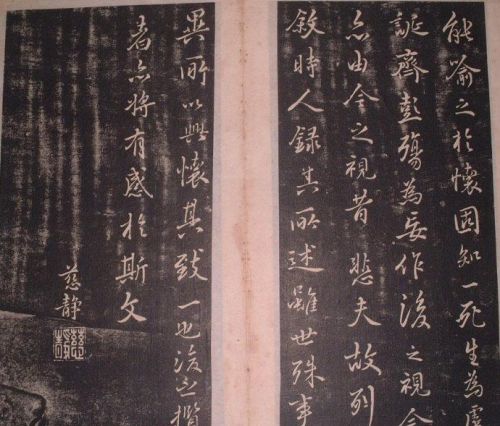 能喻之於懷固知一死生為虛
誕齊彭殤為妄作後之視今
亦由今之視昔悲夫故列
敘時人錄其所述雖世殊事
異所以興懷其致一也後之攬
者亦將有感於斯文
慈靜